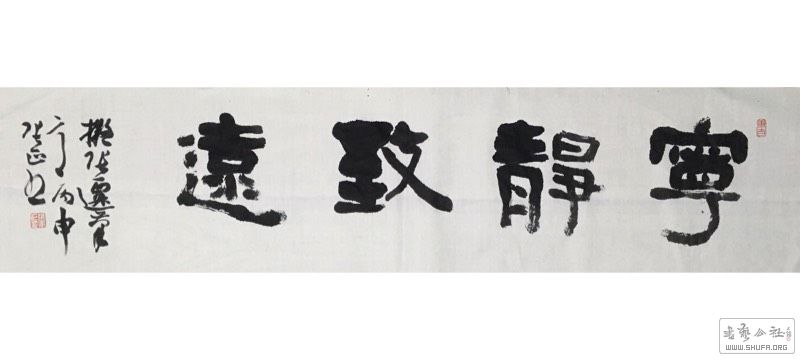 寧靜致遠
擬張遷筆
丙申
書藝公社
WWW.SHUFA.ORG